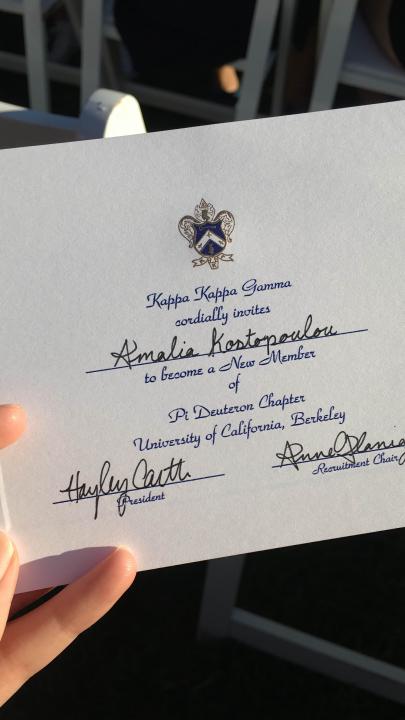 Kappa Kappa Gamma
cordially invites
Amalia Kostopoulou
to become a New Member
of
Pi Deuteron Chapter
University of California, Berkeley
Hayley
President
Anne
Recruitment Chair